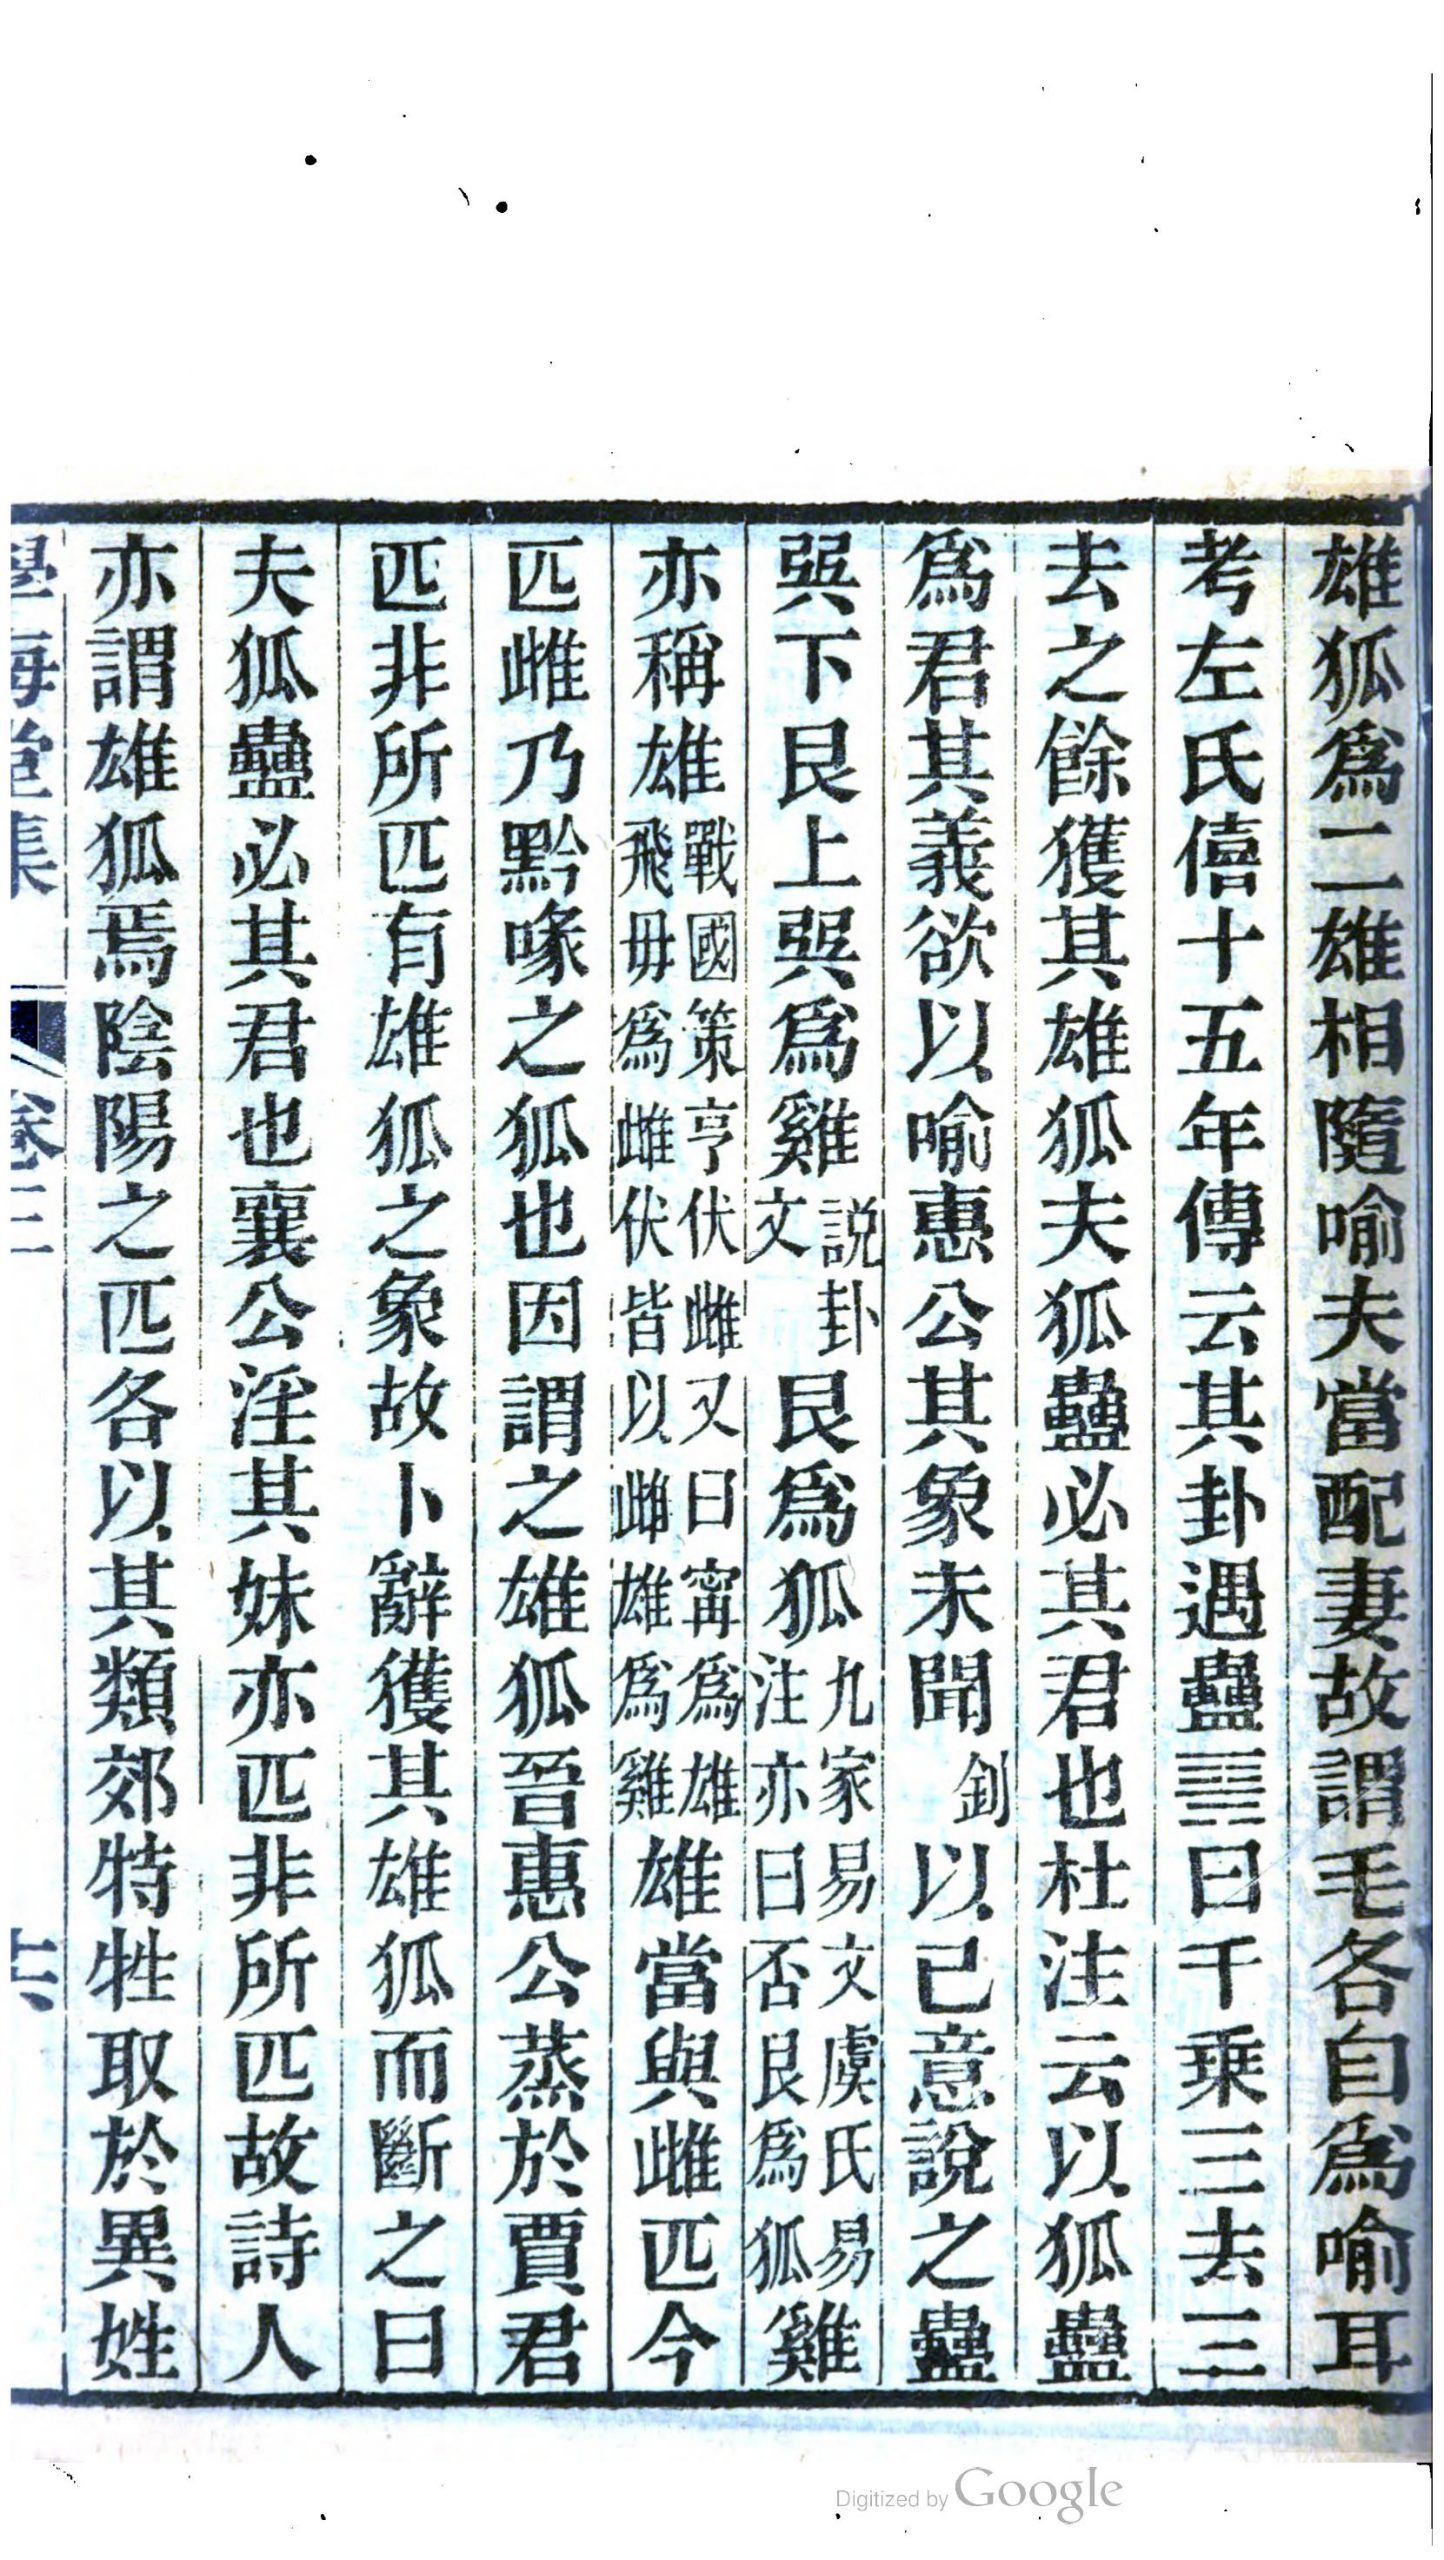 雄狐爲二雄相隨喻夫當配妻故謂毛各自爲喻耳
考左氏僖十五年傳云其卦遇蠱䷑曰千乘三去三
去之餘獲其雄狐夫狐蠱必其君也杜注云以狐蠱
爲君其義欲以喻惠公其象未聞釗以己意說之蠱
巽下艮上巽爲雞説卦文艮爲狐九家易文虞氏易注亦曰否艮爲狐雞
亦稱雄戰國策亨伏雌又曰甯爲雄飛毋爲雌伏皆以雌雄爲雞雄當與雌匹今
匹雌乃黔喙之狐也因謂之雄狐晉惠公蒸於賈君
匹非所匹有雄狐之象故卜辭獲其雄狐而斷之曰
夫狐蠱必其君也襄公淫其妹亦匹非所匹故詩人
亦謂雄狐焉陰陽之匹各以其類郊特牲取於異姓
學海堂集 卷三 十六
Digitized by Google